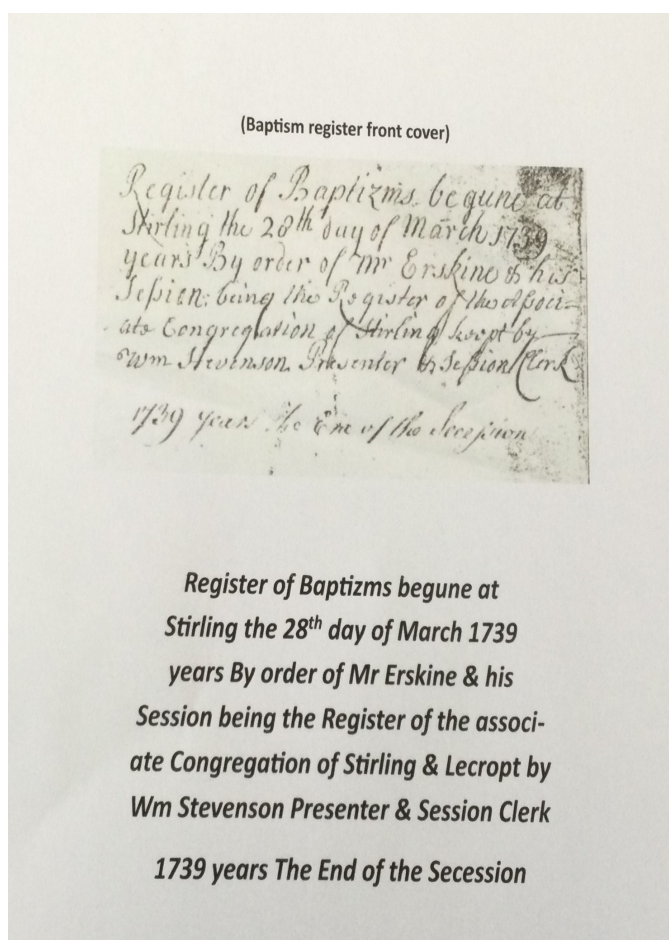 (Baptism register front cover)
Register of Baptizms begune at
Stirling the 28th day of March 1739
years By order of Mr Erskine & his
Session: being the Register of the Associ-
ate Congregation of Stirling keept by
Wm Stevenson Presenter & Session Clerk
1739 years The of the Secession
Register of Baptizms begune at
Stirling the 28th day of March 1739
years By order of Mr Erskine & his
Session being the Register of the associ-
ate Congregation of Stirling & Lecropt by
Wm Stevenson Presenter & Session Clerk
1739 years The End of the Secession